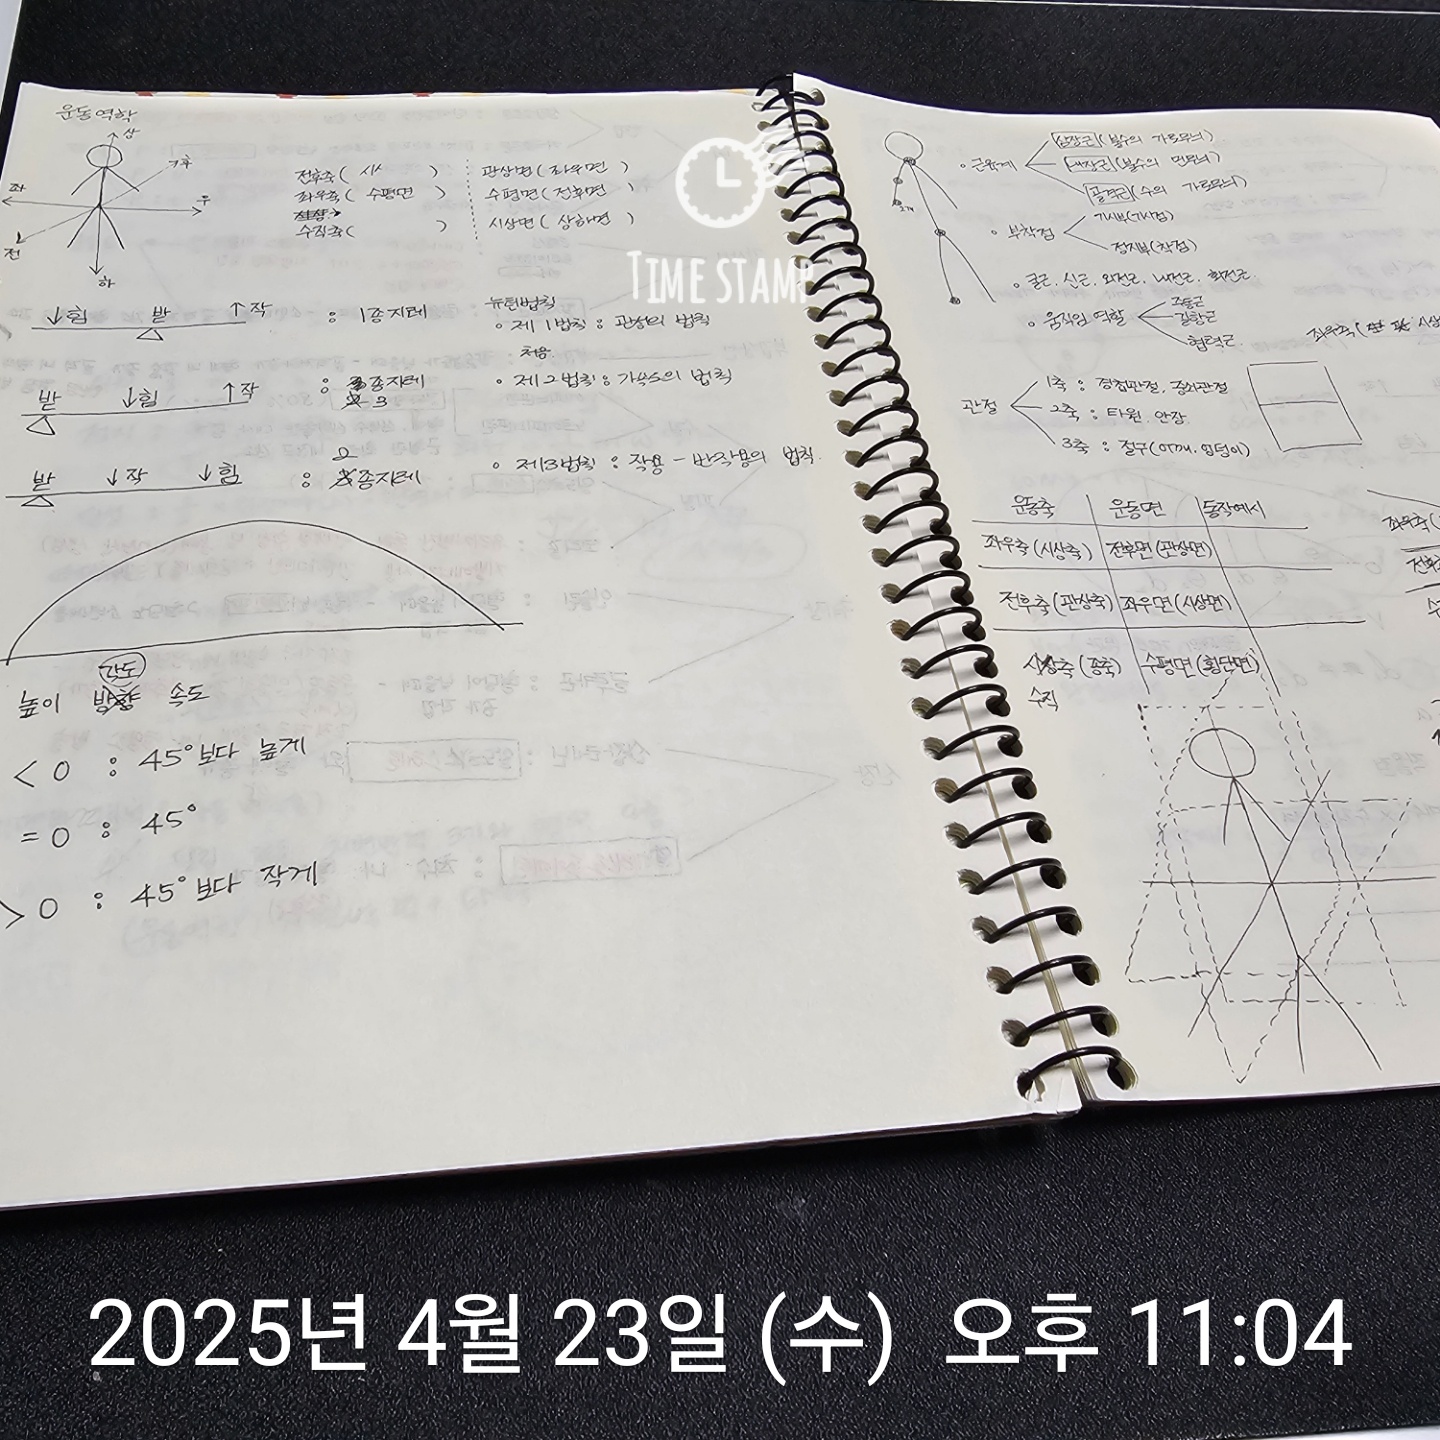 운동역학
상
후
좌
우
전
하
전후축( 시 )
좌우축( 수평면 )
수직축( )
관상면(좌우면)
수평면(전후면)
시상면(상하면)
↓힘 받 ↑작 : 1종지레
받 ↓힘 ↑작 : 3종지레
받 ↓작 ↓힘 : 2종지레
뉴턴법칙
• 제1법칙 : 관성의 법칙
처음
• 제2법칙 : 가속도의 법칙
• 제3법칙 : 작용 - 반작용의 법칙
각도
높이 방향 속도
< 0 : 45°보다 높게
= 0 : 45°
> 0 : 45°보다 작게
• 근육계
심장근(불수의 가로무늬)
내장근(불수의 민무늬)
골격근(수의 가로무늬)
• 부착점
기시부(기시점)
정지부(착점)
• 굴근. 신근. 외전근. 내전근. 회전근.
• 움직임 역할
주동근
길항근
협력근
관절
1축 : 경첩관절, 중쇠관절
2축 : 타원. 안장
3축 : 절구(어깨. 엉덩이)
운동축 운동면 동작예시
좌우축(시상축) 전후면(관상면)
전후축(관상축) 좌우면(시상면)
시상축(종축) 수평면(횡단면)
수직
좌우축(
TIME STAMP
2025년 4월 23일 (수) 오후 11:04